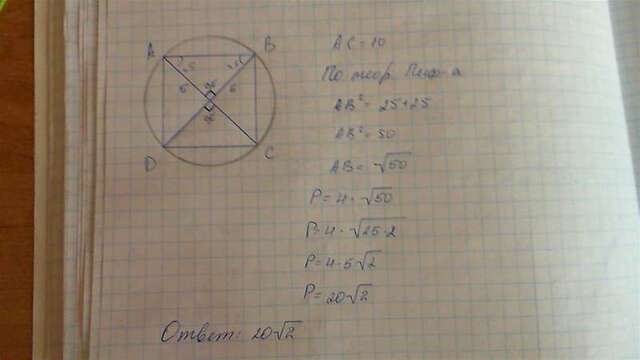 A B
45 45
5 90 5
90
D C
AC = 10
По теор. Пиф-а
AB² = 25+25
AB² = 50
AB = √50
P = 4 · √50
P = 4 · √25·2
P = 4·5√2
P = 20√2
Ответ: 20√2